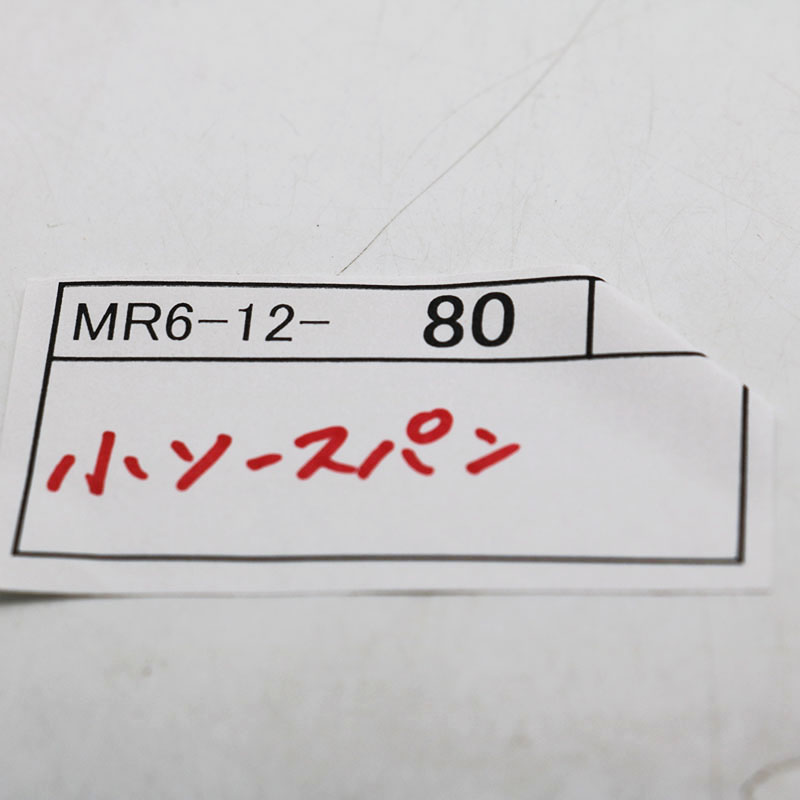 MR6-12- 80
小ソースパン